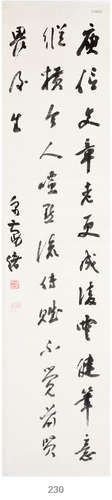 庾信文章老更成凌雲健筆意
縱橫今人嗤點流傳賦不覺前賢
畏後生
230